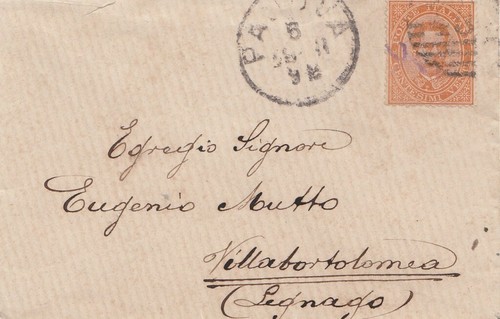 PADOVA
9
POSTE ITALIANE
CENTESIMI VENTI
Egregio Signore
Eugenio Mutto
Villabortolomea
(Legnago)